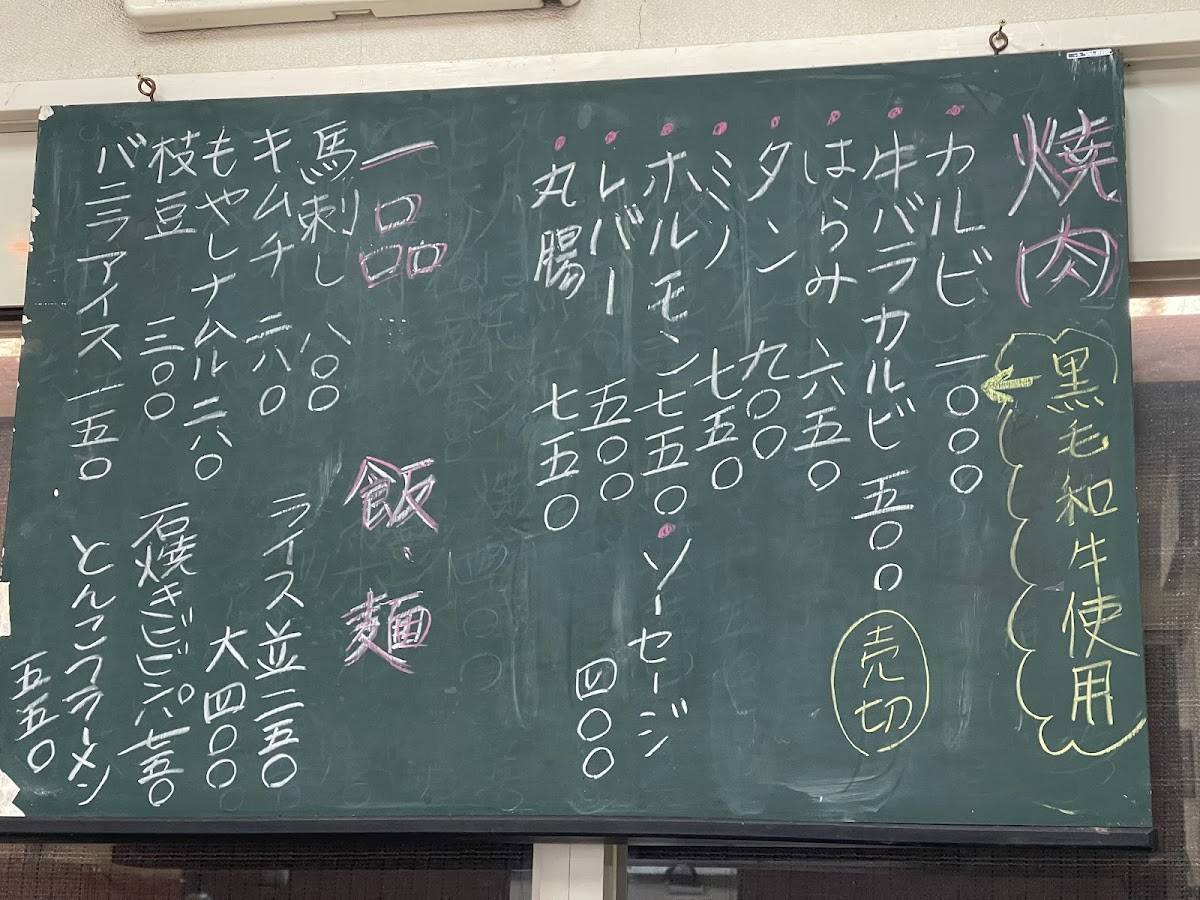 焼肉
黒毛和牛使用
カルビ 一〇〇〇
牛バラカルビ 五〇〇
売切
はらみ 六五〇
タン 九〇〇
ミノ 七五〇
ホルモン 七五〇
ソーセージ 四〇〇
レバー 五〇〇
丸腸 七五〇
一品
馬刺し 八〇〇
キムチ 二八〇
もやしナムル 二八〇
枝豆 三〇〇
バニラアイス 一五〇
飯、麺
ライス並 二五〇
大 四〇〇
石焼きビビンパ 七五〇
とんこつラーメン
五五〇